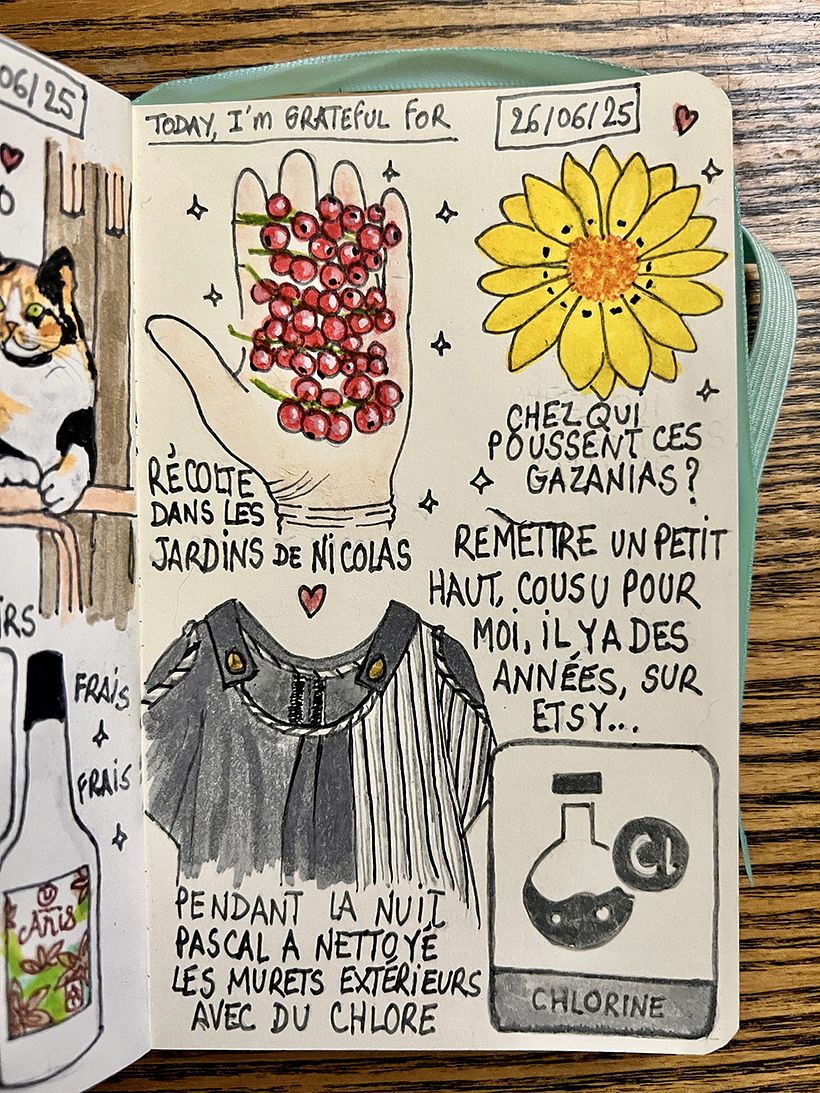 06/25
IRS
FRAIS
FRAIS
Anis
TODAY, I'm GRATEFUL FOR
26/06/25
RÉCOLTE
DANS LES
JARDINS DE NICOLAS
CHEZ QUI
POUSSENT CES
GAZANIAS?
REMETTRE UN PETIT
HAUT, COUSU POUR
MOI, IL Y A DES
ANNÉES, SUR
ETSY...
PENDANT LA NUIT
PASCAL A NETTOYÉ
LES MURETS EXTÉRIEURS
AVEC DU CHLORE
Cl
CHLORINE